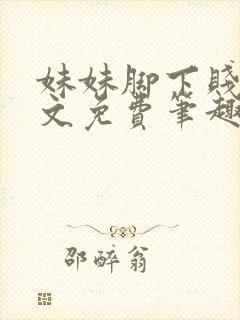 妹妹脚下贱
文免费笔趣
邵醉翁